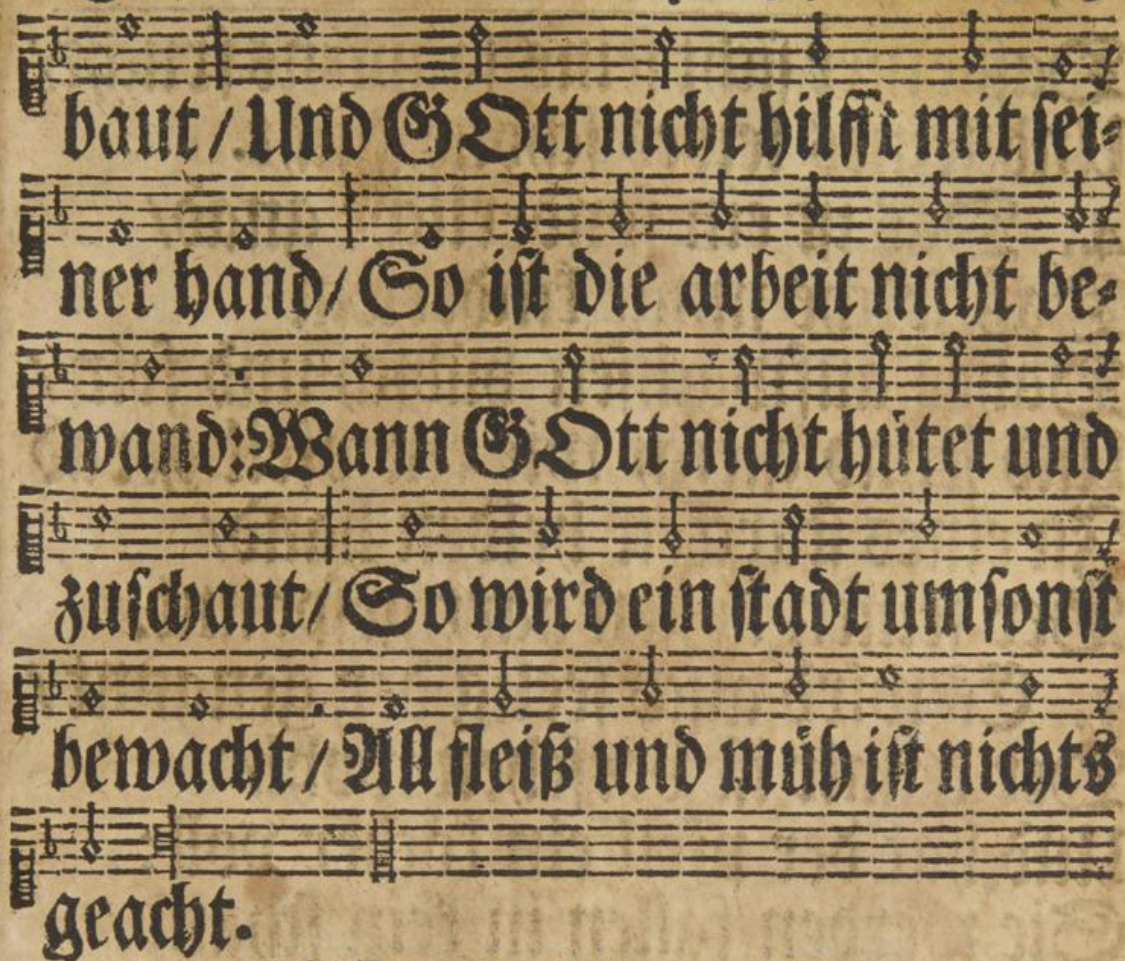 baut / Und GOtt nicht hilfft mit sei⸗
ner hand / So ist die arbeit nicht be⸗
wand: Wann GOtt nicht hütet und
zuschaut / So wird ein stadt umsonst
bewacht / All fleiß und müh ist nichts
geacht.